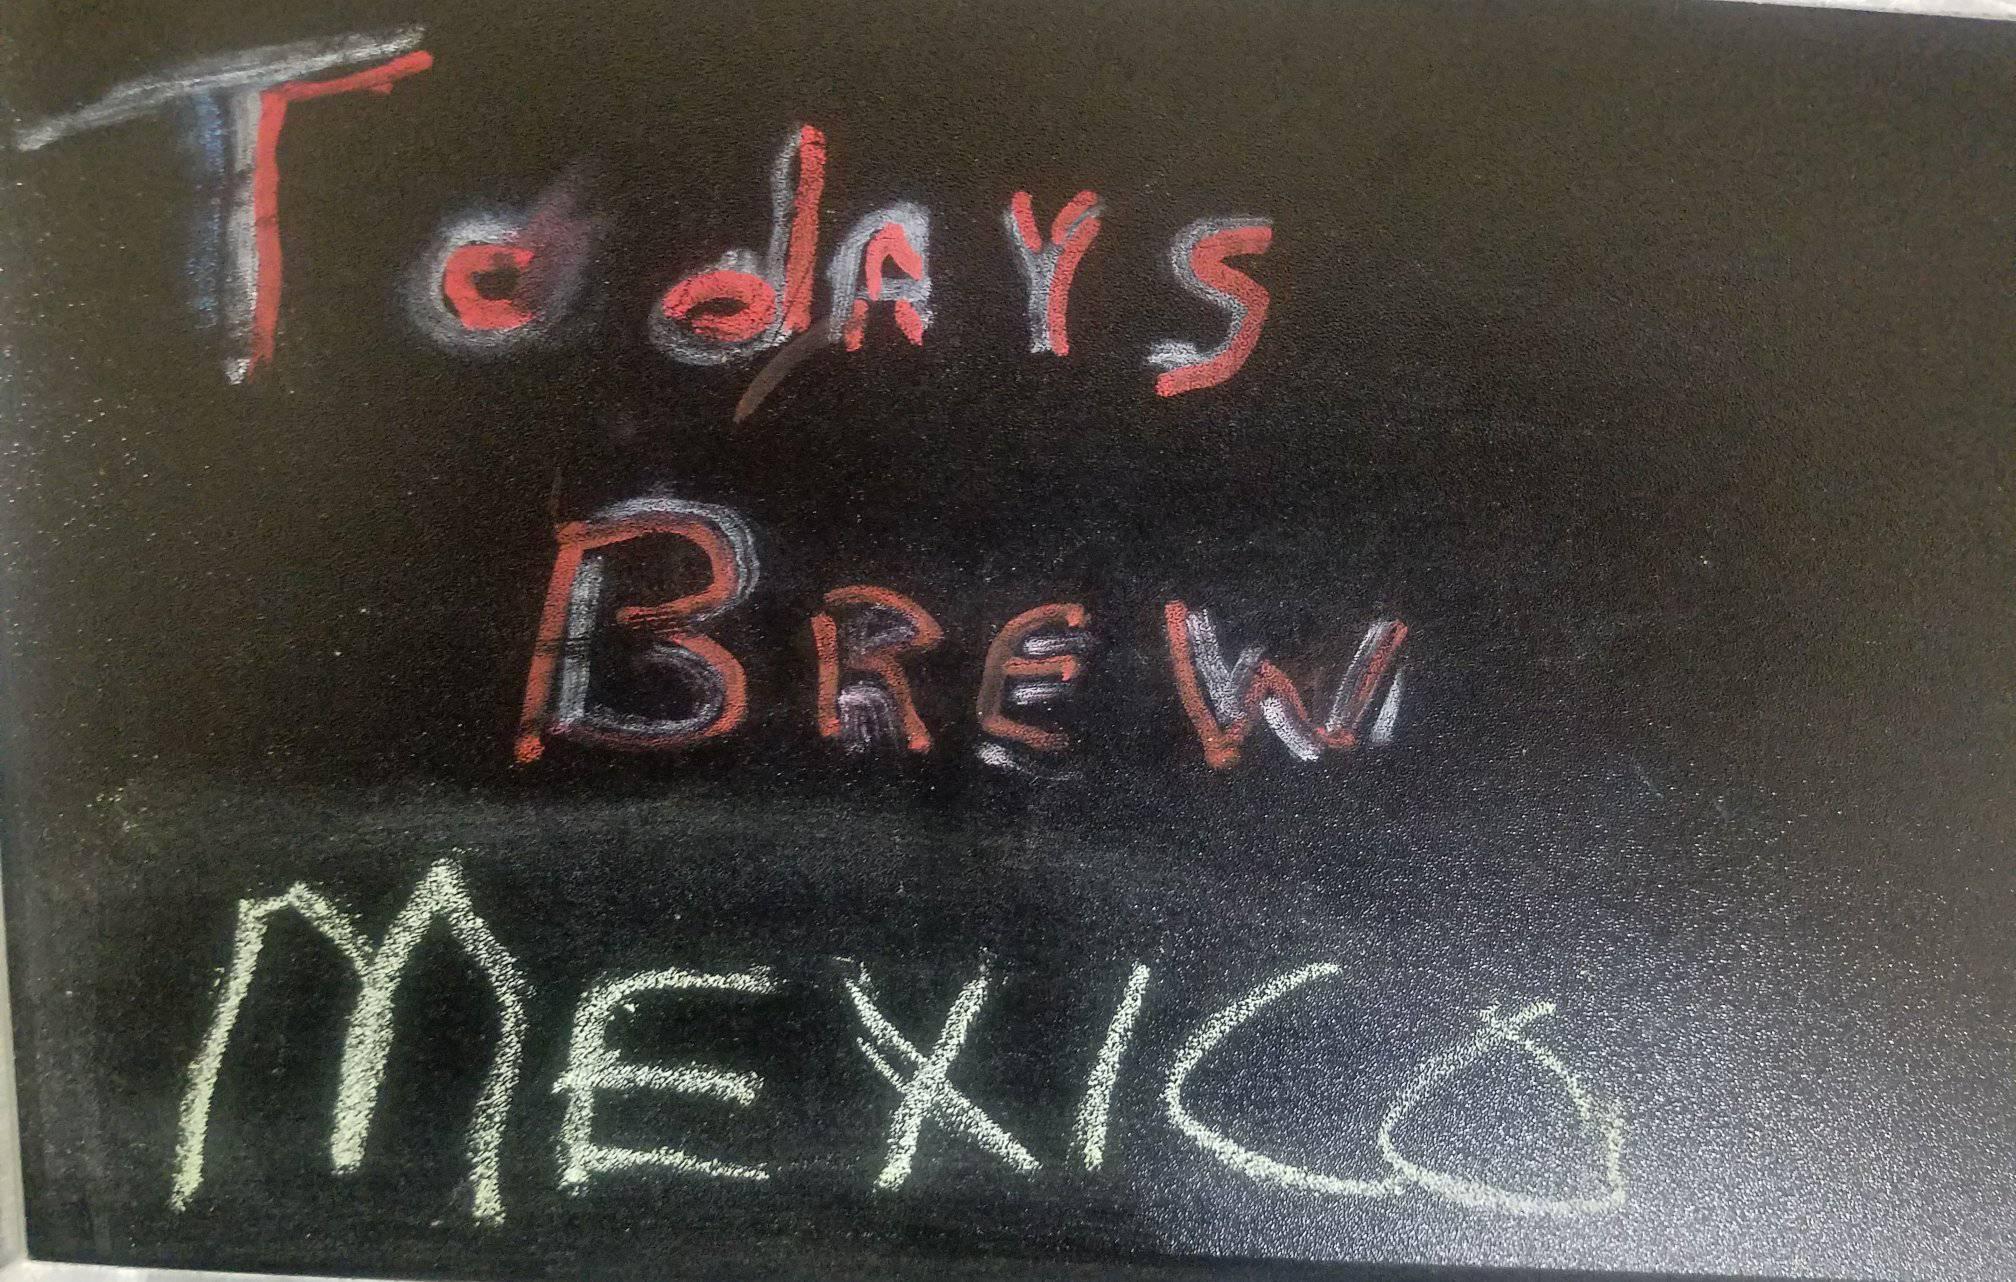 TodAYS
BREW
MEXICO